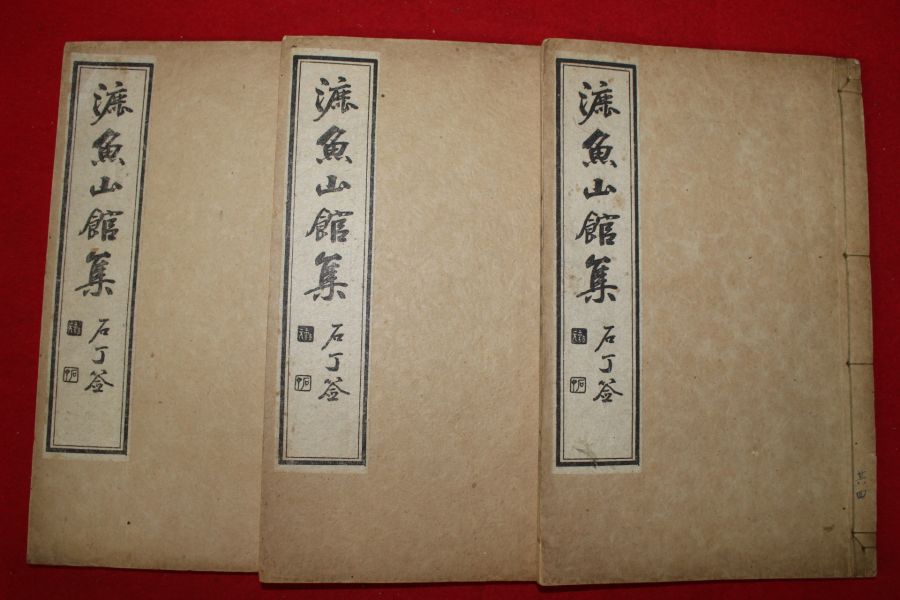 漉魚山館集
石丁签
漉魚山館集
石丁签
漉魚山館集
石丁签
其四